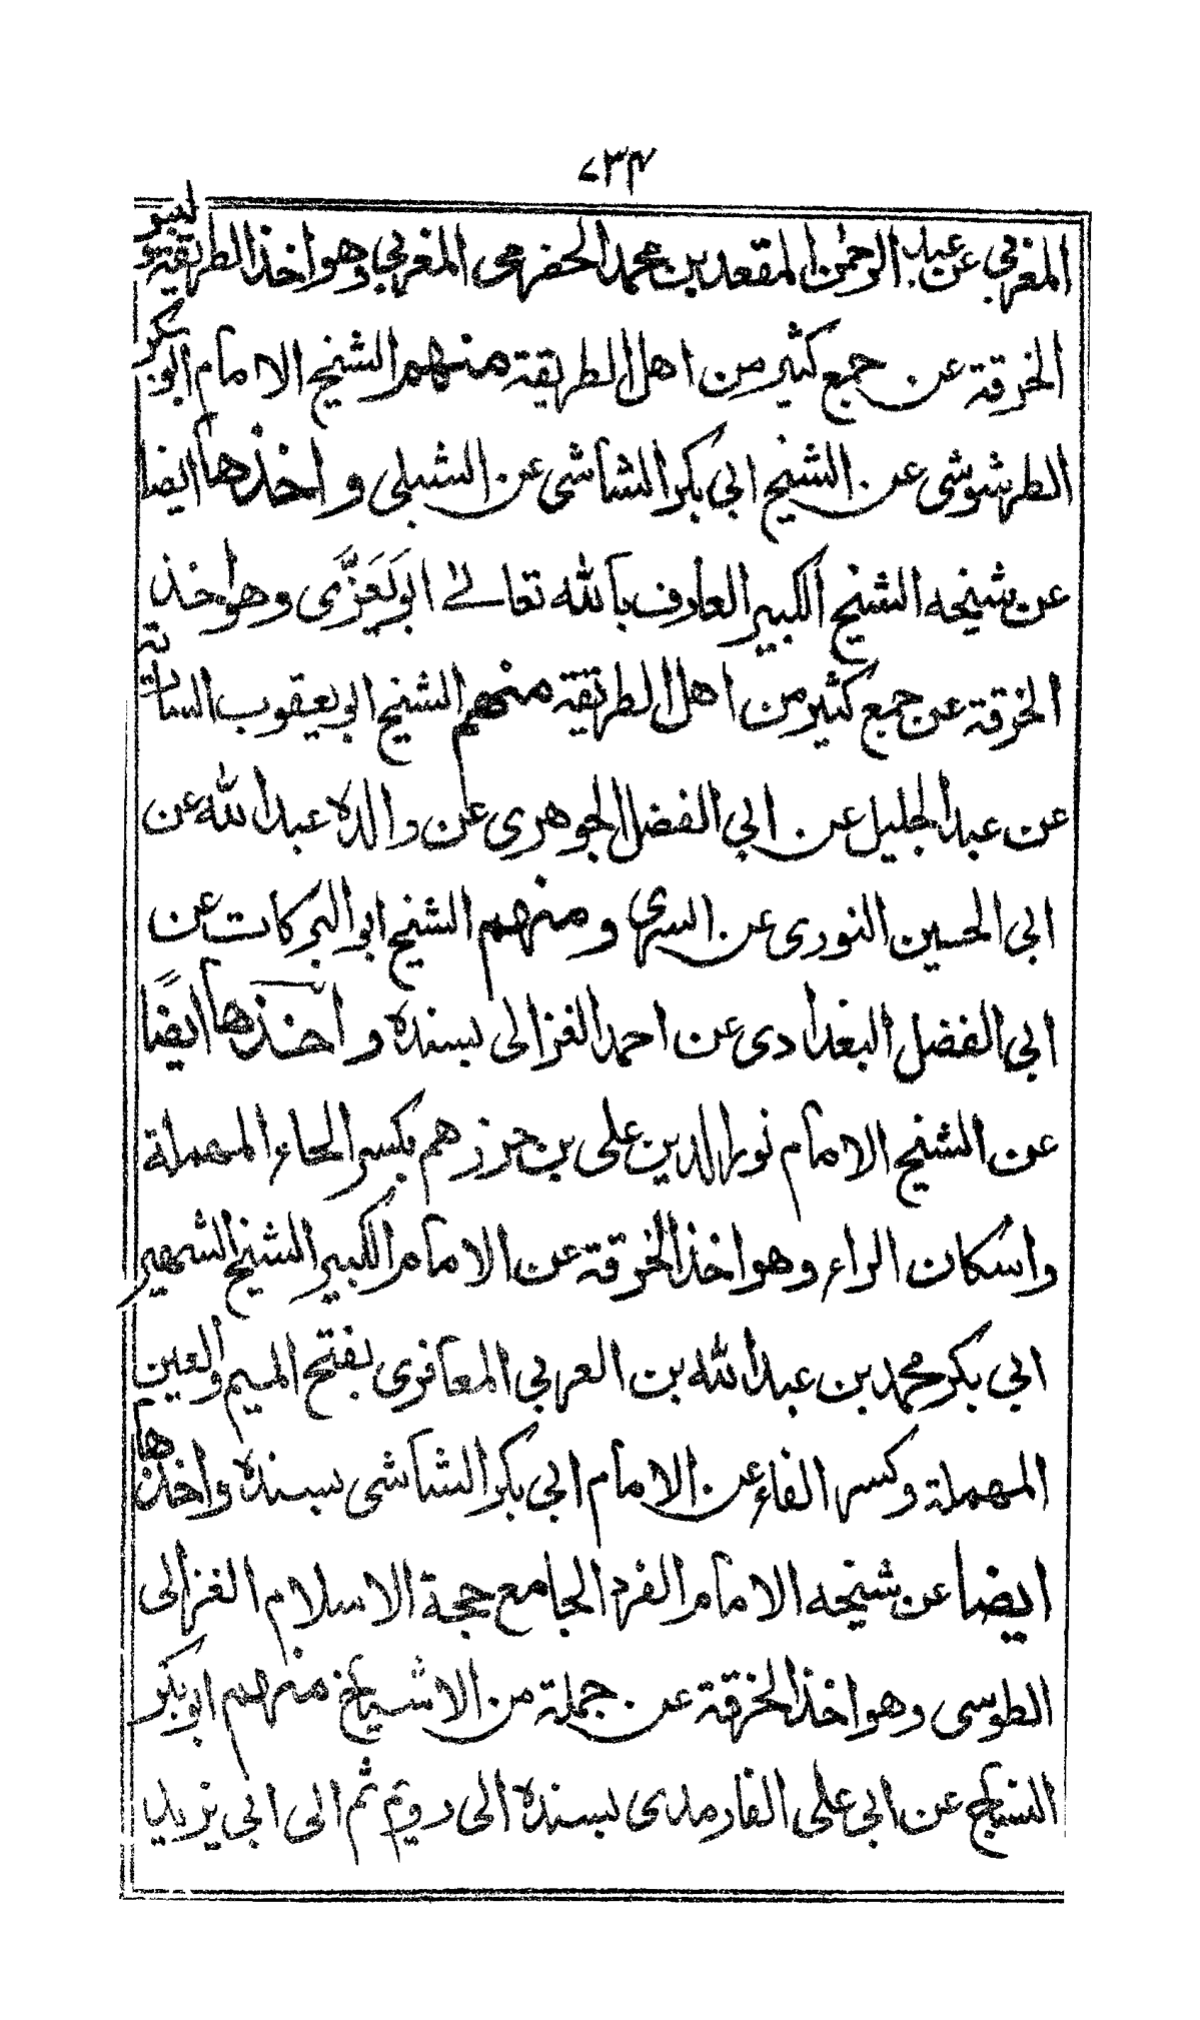 المغربي عن عبد الرحمن المقعد بن محمد الحضرمي المغربي وهو اخذ الطريقة لبس
الخرقة عن جمع كثير من اهل الطريقة منهم الشيخ الامام ابو بكر
الطرشوشى عن الشيخ ابي بكر الشاشى عن الشبلى واخذها ايضا
عن شيخه الشيخ الكبير العارف بالله تعالى ابو يَعَزَّى وهو اخذ
الخرقة عن جمع كثير من اهل الطريقة منهم الشيخ ابي يعقوب السارية
عن عبد الجليل عن ابي الفضل الجوهرى عن والده عبد الله عن
ابي الحسين النورى عن السرى ومنهم الشيخ ابو البركات عن
ابي الفضل البغدادى عن احمد الغزالى بسنده واخذها ايضًا
عن الشيخ الامام نور الدين على بن حرزهم بكسر الحاء المهملة
واسكان الراء وهو اخذ الخرقة عن الامام الكبير الشيخ الشهير
ابي بكر محمد بن عبد الله بن العربي المعافرى بفتح الميم والعين
المهملة وكسر الفاء عن الامام ابي بكر الشاشى بسنده واخذها
ايضا عن شيخه الامام الفرد الجامع حجة الاسلام الغزالى
الطوسى وهو اخذ الخرقة عن جملة من الاشياخ منهم ابو بكر
النساج عن ابي على الفارمدى بسنده الى رويم ثم الى ابي يزيد